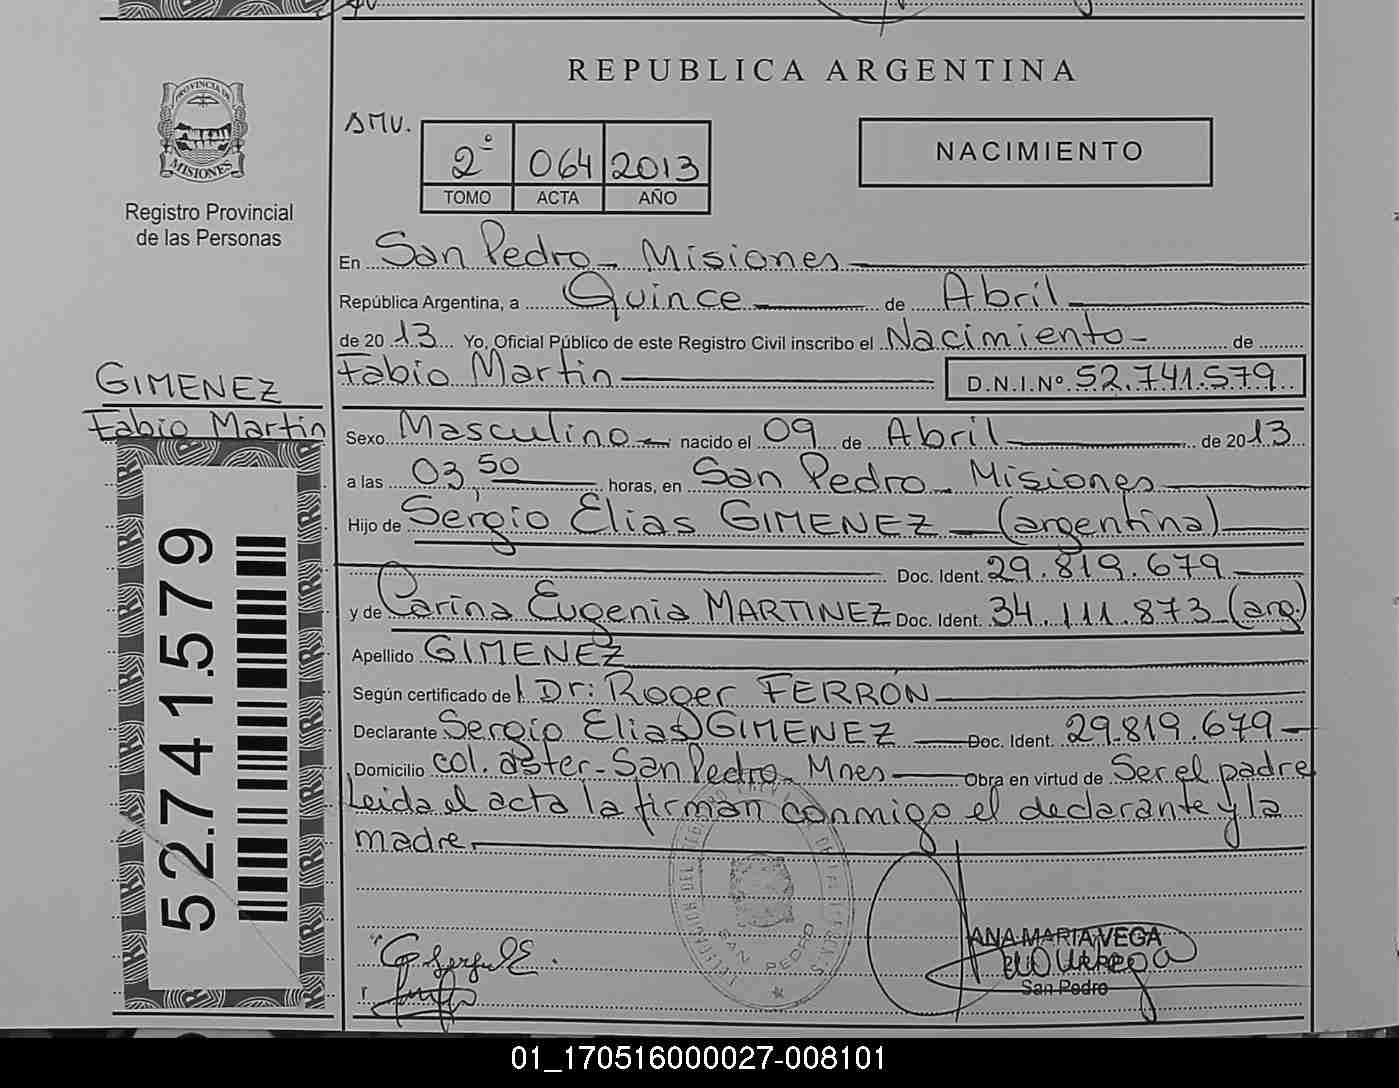 REPUBLICA ARGENTINA
PROVINCIA DE
MISIONES
Registro Provincial
de las Personas
SMU.
2º 064 2013
TOMO ACTA AÑO
NACIMIENTO
En San Pedro - Misiones
República Argentina, a Quince de Abril
de 2013 Yo, Oficial Público de este Registro Civil inscribo el Nacimiento - de
Fabio Martin D.N.I.Nº 52.741.579
GIMENEZ
Fabio Martin
Sexo Masculino nacido el 09 de Abril de 2013
a las 03,50 horas, en San Pedro - Misiones
Hijo de Sergio Elias GIMENEZ - (argentina)
Doc. Ident. 29.819.679
y de Carina Eugenia MARTINEZ Doc. Ident. 34.111.873 (arg.)
Apellido GIMENEZ
Según certificado del Dr: Roger FERRÓN
Declarante Sergio Elias GIMENEZ Doc. Ident. 29.819.679
Domicilio col. aster - San Pedro - Mnes Obra en virtud de Ser el padre
Leida el acta la firman conmigo el declarante y la
madre.
52.741.579
SAN PEDRO
ANA MARIA VEGA
San Pedro
01_170516000027-008101